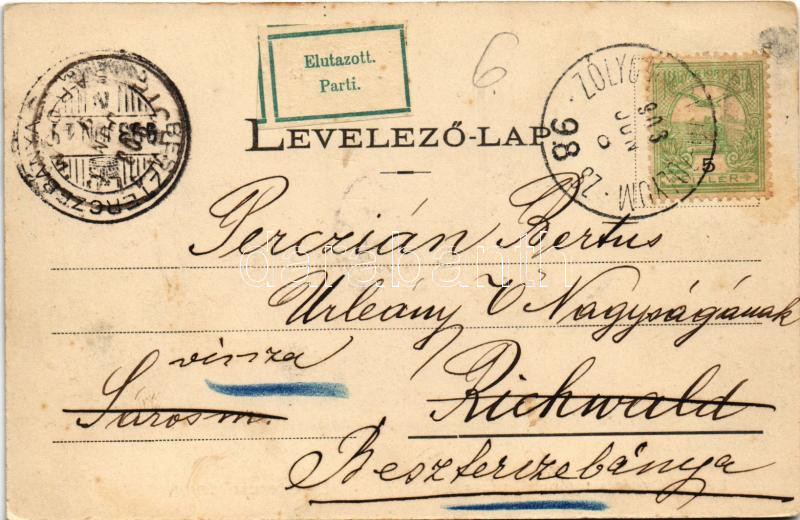 Elutazott.
Parti.
6.
LEVELEZŐ-LAP
ZÓLYOM
903
JUN
86
SZ
5
BESZTERCZEBÁNYA
Perczián Bertus
Urleány Ő Nagyságának
vissza
Sárosm. Richwald
Beszterczebánya
darabanth